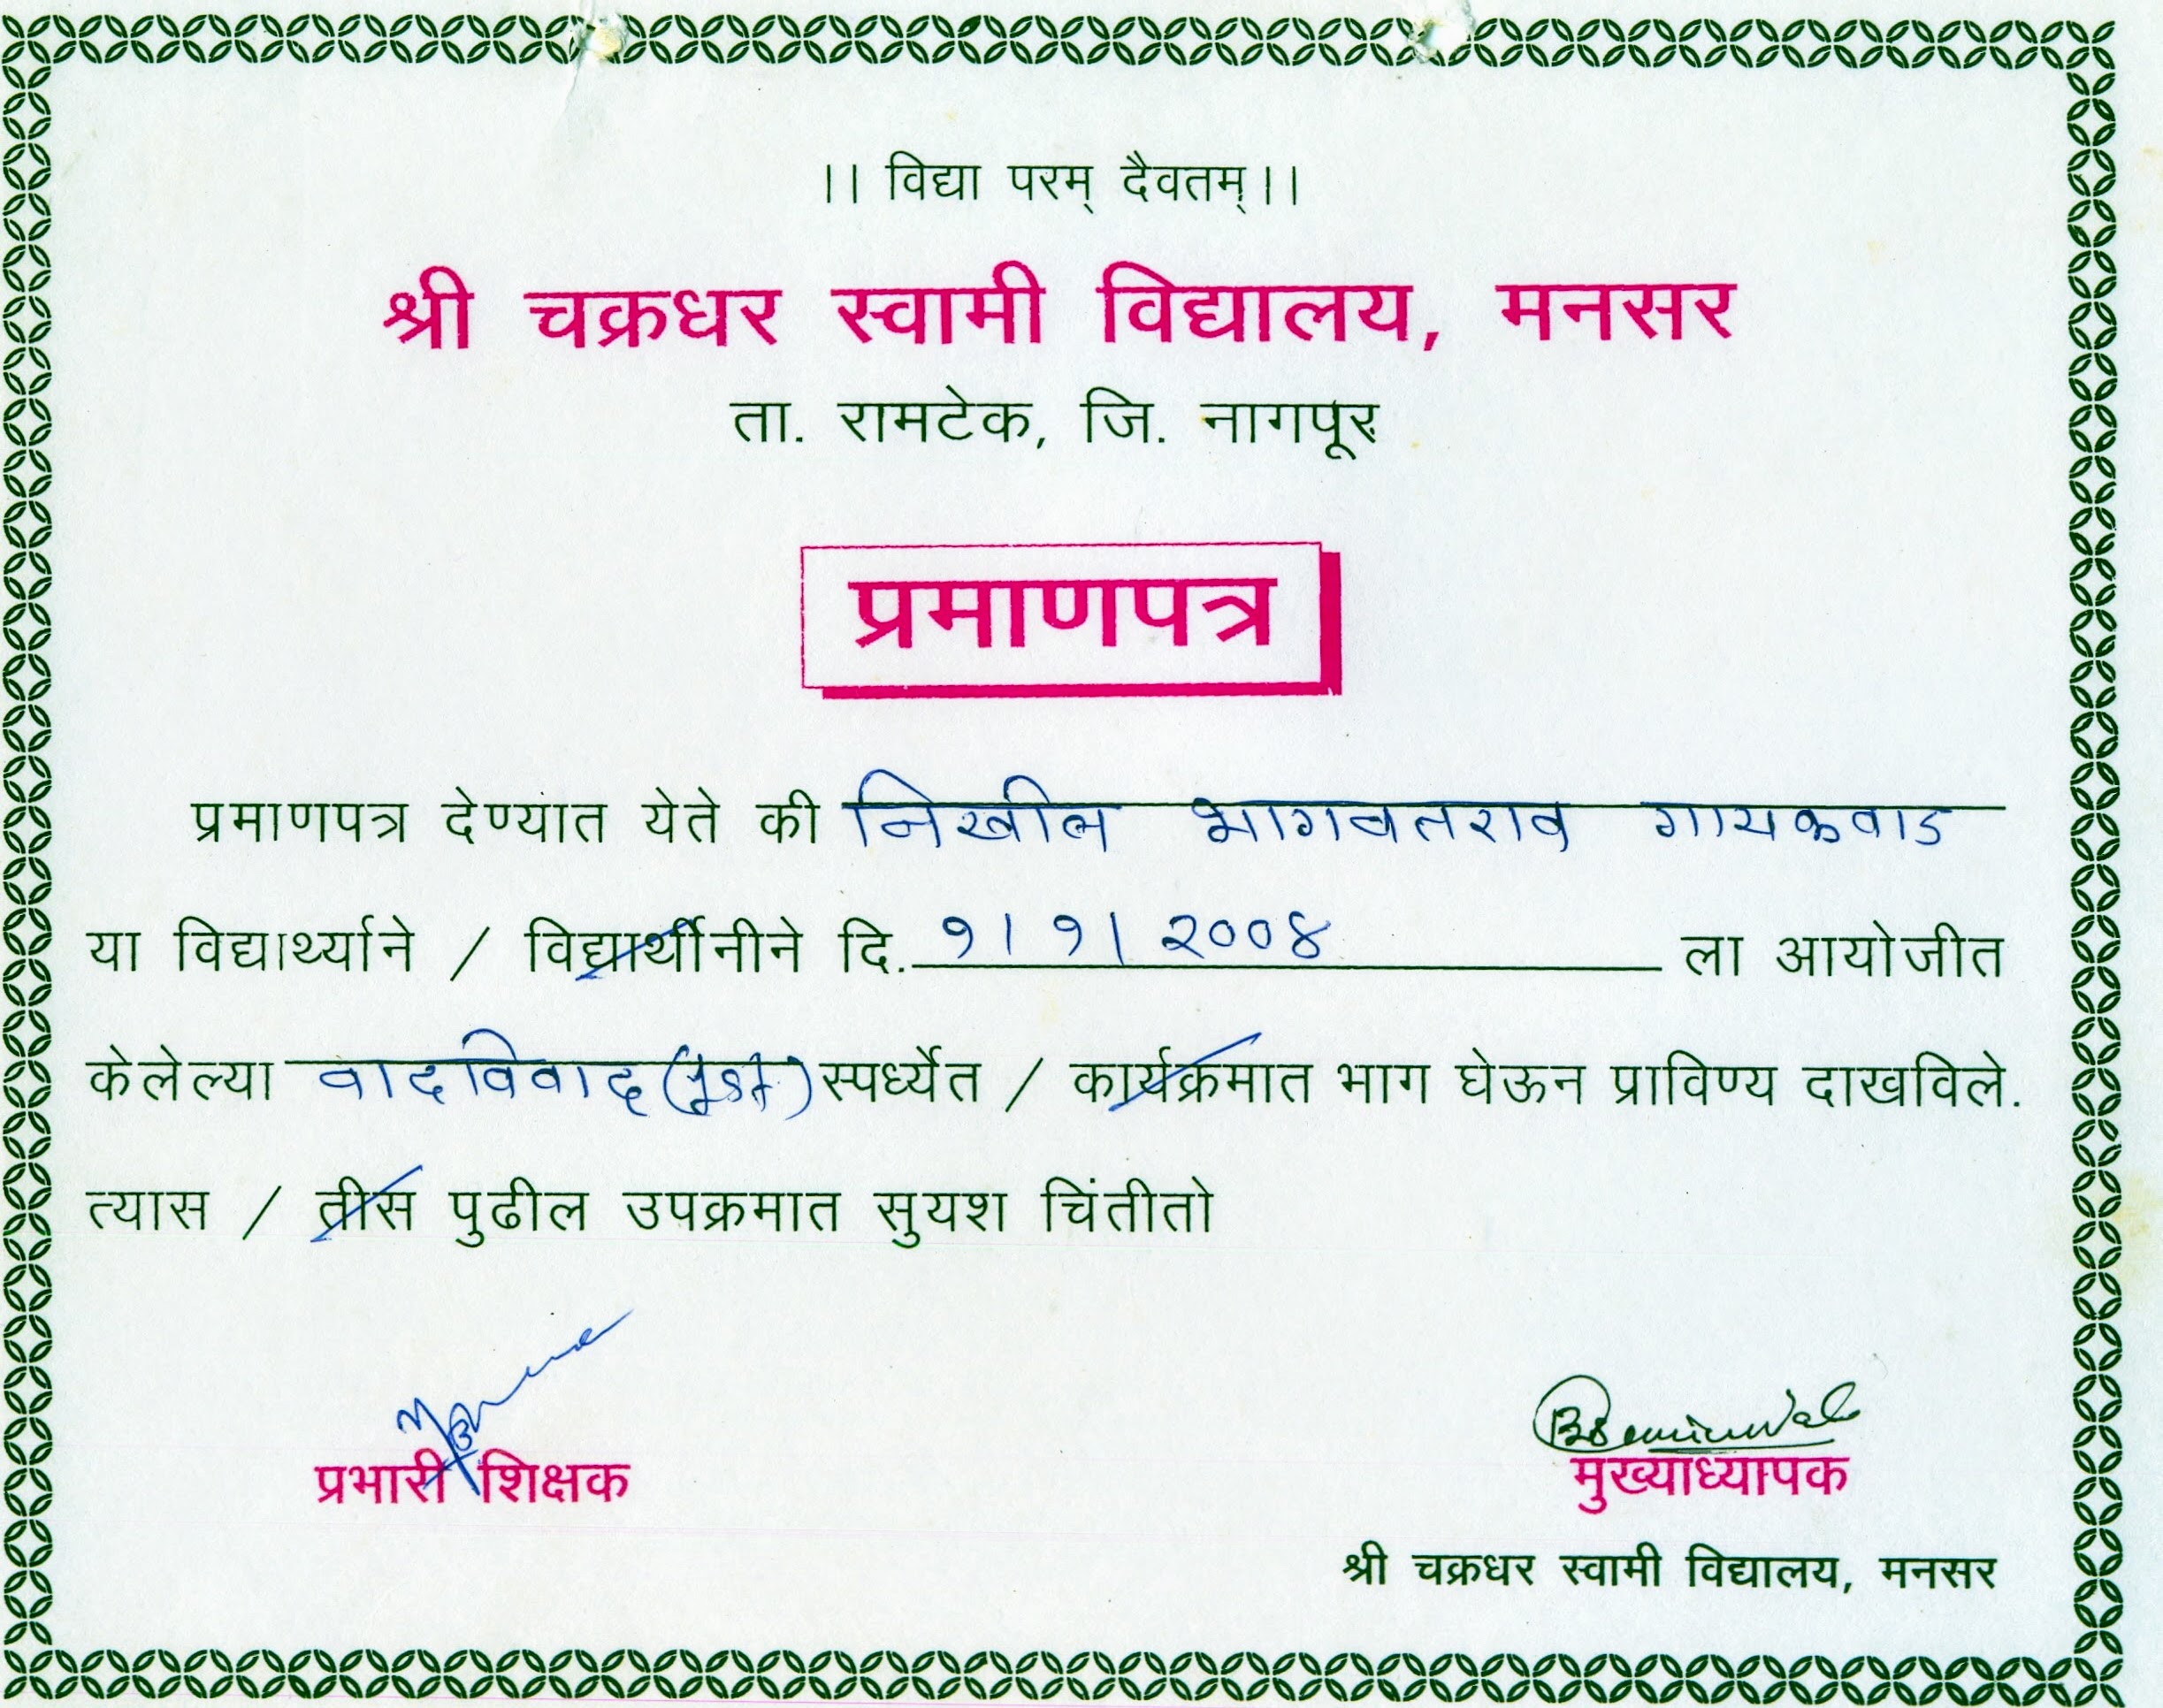 ।। विद्या परम् दैवतम्।।
श्री चक्रधर स्वामी विद्यालय, मनसर
ता. रामटेक, जि. नागपूर
प्रमाणपत्र
प्रमाणपत्र देण्यात येते की निखील भागवतराव गायकवाड
या विद्यार्थ्याने / विद्यार्थीनीने दि. १।१।२००४ ला आयोजीत
केलेल्या वादविवाद स्पर्ध्येत / कार्यक्रमात भाग घेऊन प्राविण्य दाखविले.
त्यास / तीस पुढील उपक्रमात सुयश चिंतीतो
प्रभारी शिक्षक
मुख्याध्यापक
श्री चक्रधर स्वामी विद्यालय, मनसर